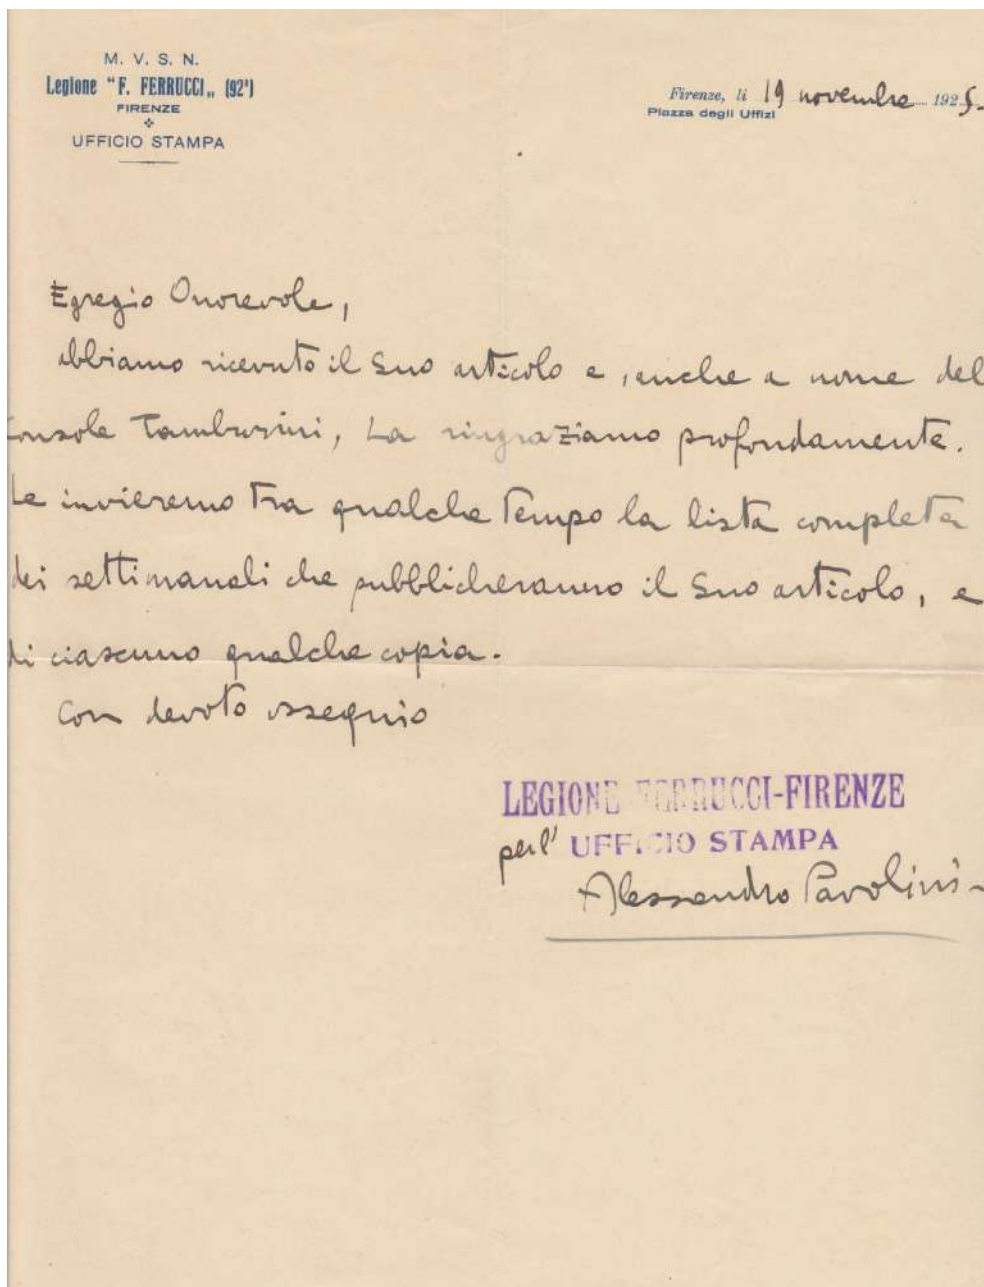 M. V. S. N.
Legione "F. FERRUCCI„ (92ª)
FIRENZE
UFFICIO STAMPA
Firenze, li 19 novembre 1925.
Piazza degli Uffizi
Egregio Onorevole,
abbiamo ricevuto il Suo articolo e, anche a nome del
Console Tamburini, La ringraziamo profondamente.
Le invieremo tra qualche tempo la lista completa
dei settimanali che pubblicheranno il Suo articolo, e
di ciascuno qualche copia.
Con devoto ossequio
LEGIONE FERRUCCI-FIRENZE
per l' UFFICIO STAMPA
Alessandro Pavolini